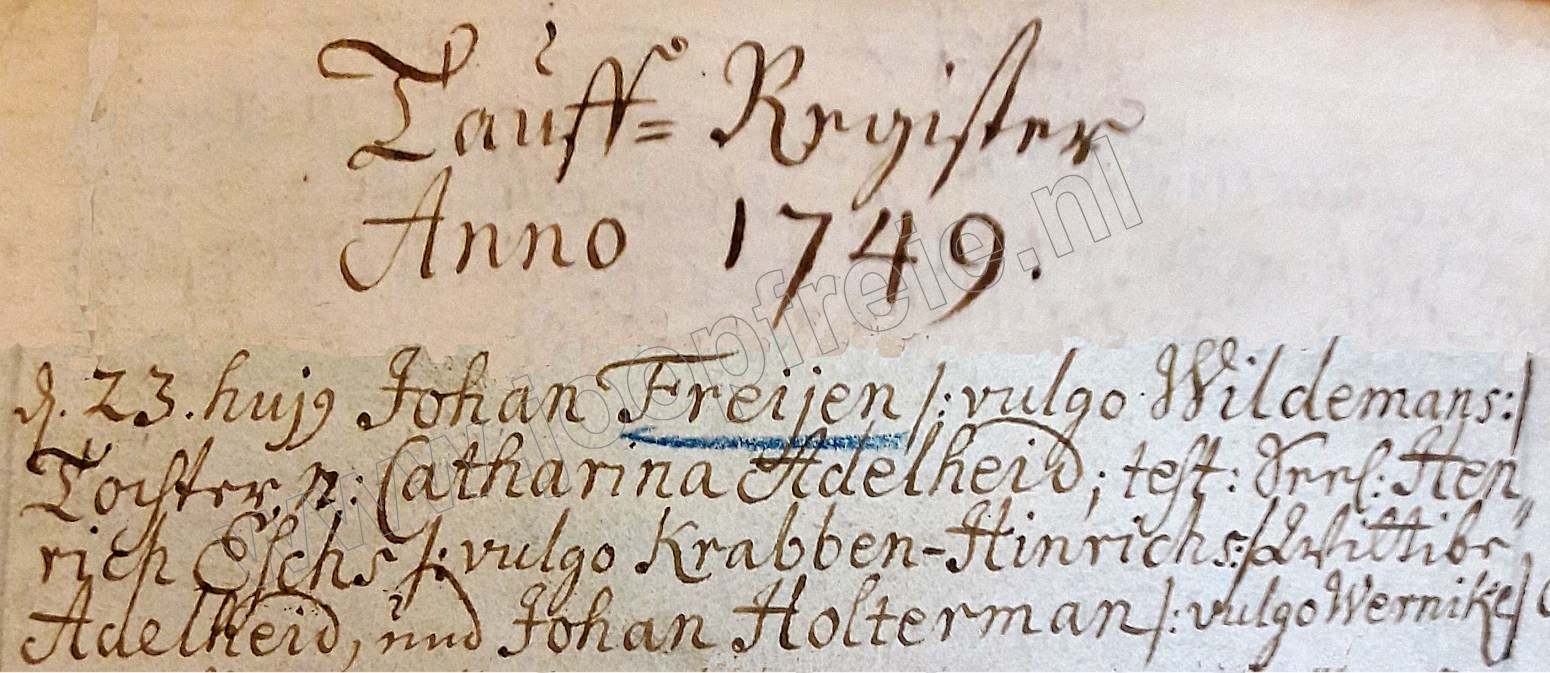 Tauff= Register
Anno 1749.
d. 23. hujg Johan Freijen /: vulgo Wildemans:/
Tochter, n: Catharina Adelheid; test: Hen„
rich Eschs /: vulgo Krabben-Hinrichs:/ Wittibe
Adelheid, und Johan Holterman /: vulgo Wernike/
www.joopfreie.nl